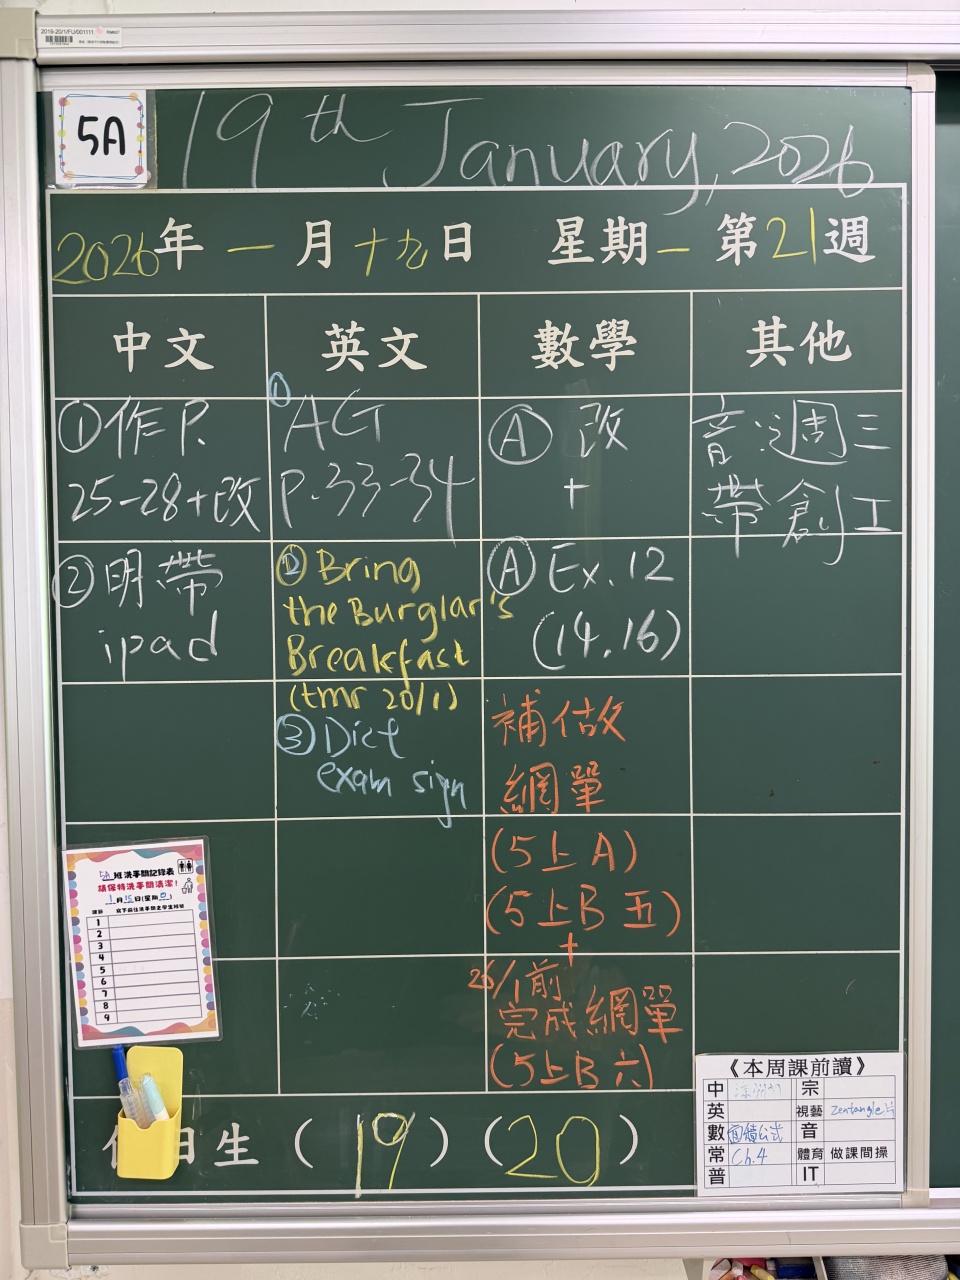 2019-20/1/FU/001111
5A
19th January, 2026
2026年一月十九日 星期一 第21週
中文 英文 數學 其他
①作P.
25-28+改
②明帶
ipad
① AG
P.33-34
② Bring
the Burglar's
Breakfast
(tmr 20/1)
③ Dict
exam sign
Ⓐ 改
+
Ⓐ Ex.12
(14.16)
補做
網單
(5上A)
(5上B 五)
+
26/1前
完成網單
(5上B 六)
音:週三
帶創工
5A班洗手間記錄表
請保持洗手間清潔!
1月15日(星期四)
1
2
3
4
5
6
7
8
9
日生 (19) (20)
《本周課前讀》
中 宗
英 視藝 Zentangle
數 面積公式 音
常 Ch.4 體育 做課間操
普 IT